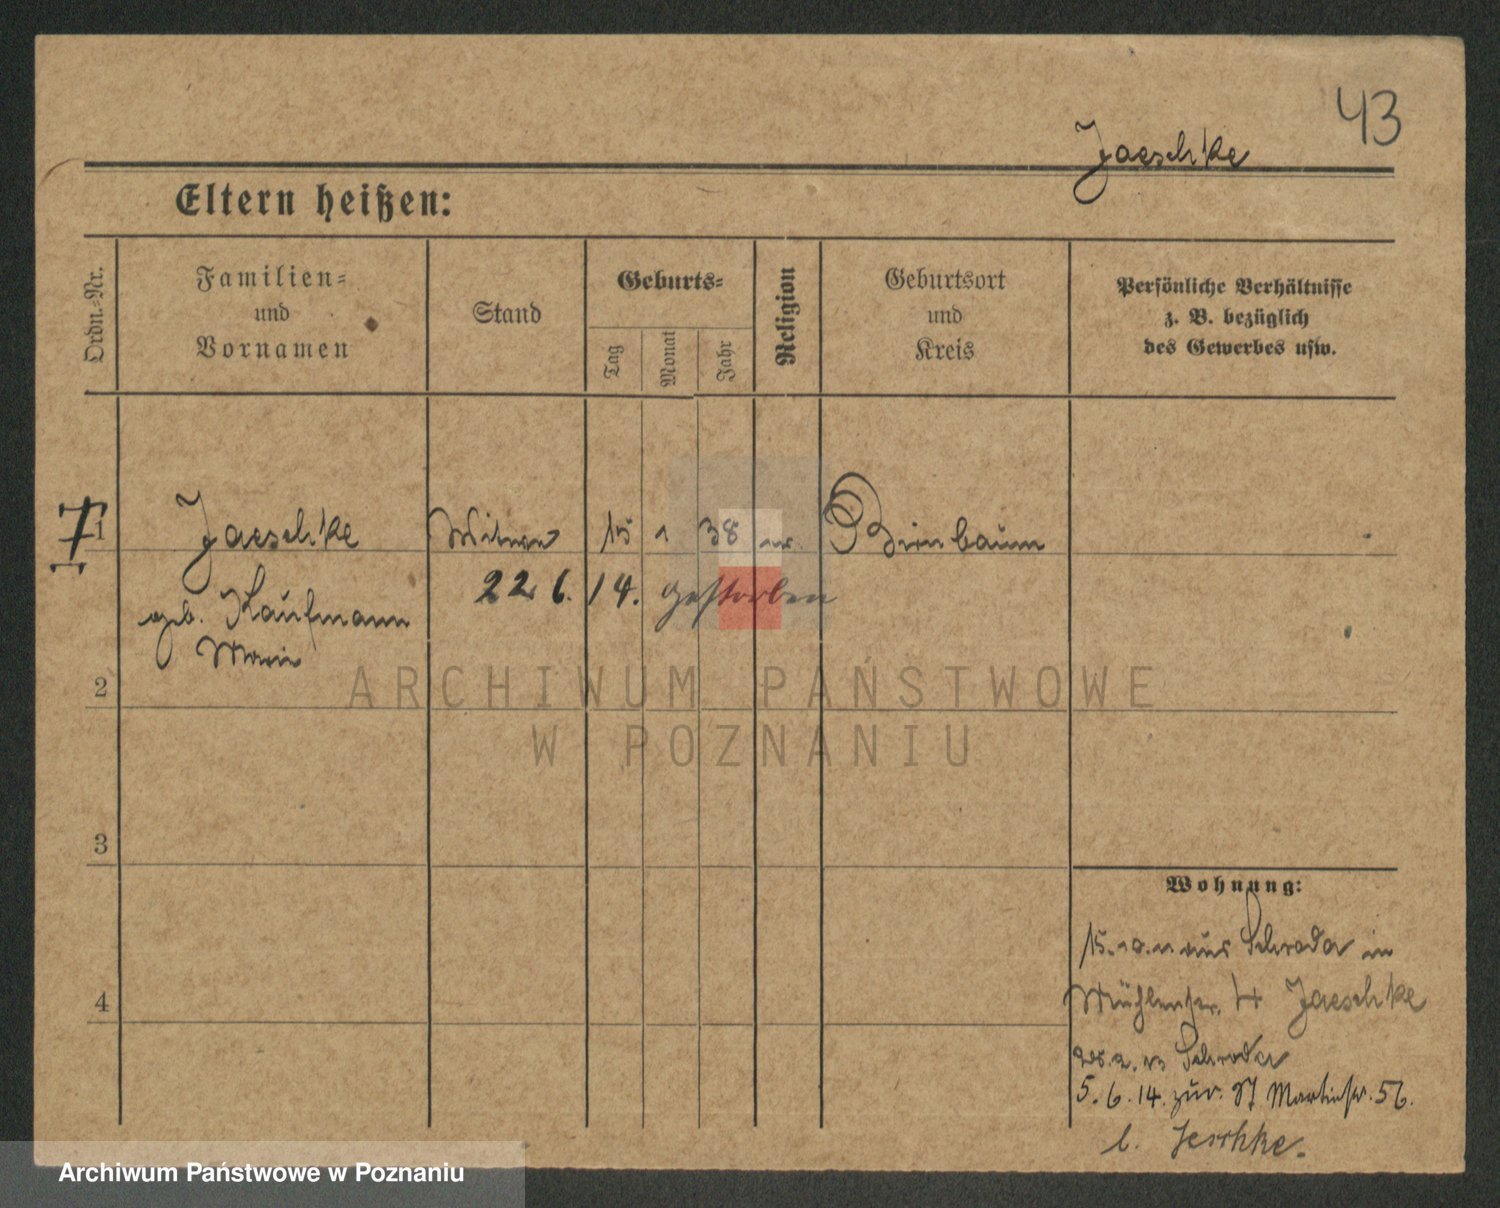 43
Jaeschke
Eltern heißen:
Ordn.-Nr.
Familien-
und
Vornamen
Stand
Geburts-
Tag
Monat
Jahr
Religion
Geburtsort
und
Kreis
Persönliche Verhältnisse
z. B. bezüglich
des Gewerbes usw.
1 Jaeschke Witwe 15 1 38 Birnbaum
22 6. 14. gestorben
geb. Kaufmann
Marie
2
ARCHIWUM PAŃSTWOWE
W POZNANIU
3
Wohnung:
15.10.11 aus Schroda in
Mühlenstr. 4 Jaeschke
Schroda
5.6.14. zur. St Martinstr. 56.
b. Jeschke.
4
Archiwum Państwowe w Poznaniu